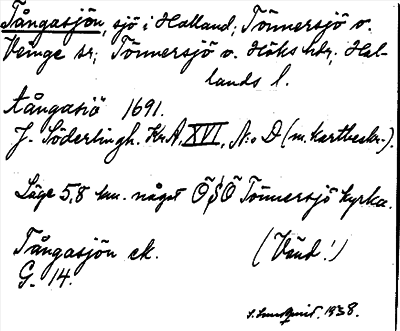 Tångasjön, sjö i Halland; Tönnersjö o.
Veinge sr; Tönnersjö o. Höks hdr, Hal-
lands l.
tångasiö 1691.
J. Söderlingh. KrA, XVI, N:o D (m. kartbeskr.).
Läge 5,8 km. något ÖSÖ Tönnersjö kyrka.
Tångasjön ek. (Vänd!)
G. 14.
S. Lundquist. 1938.